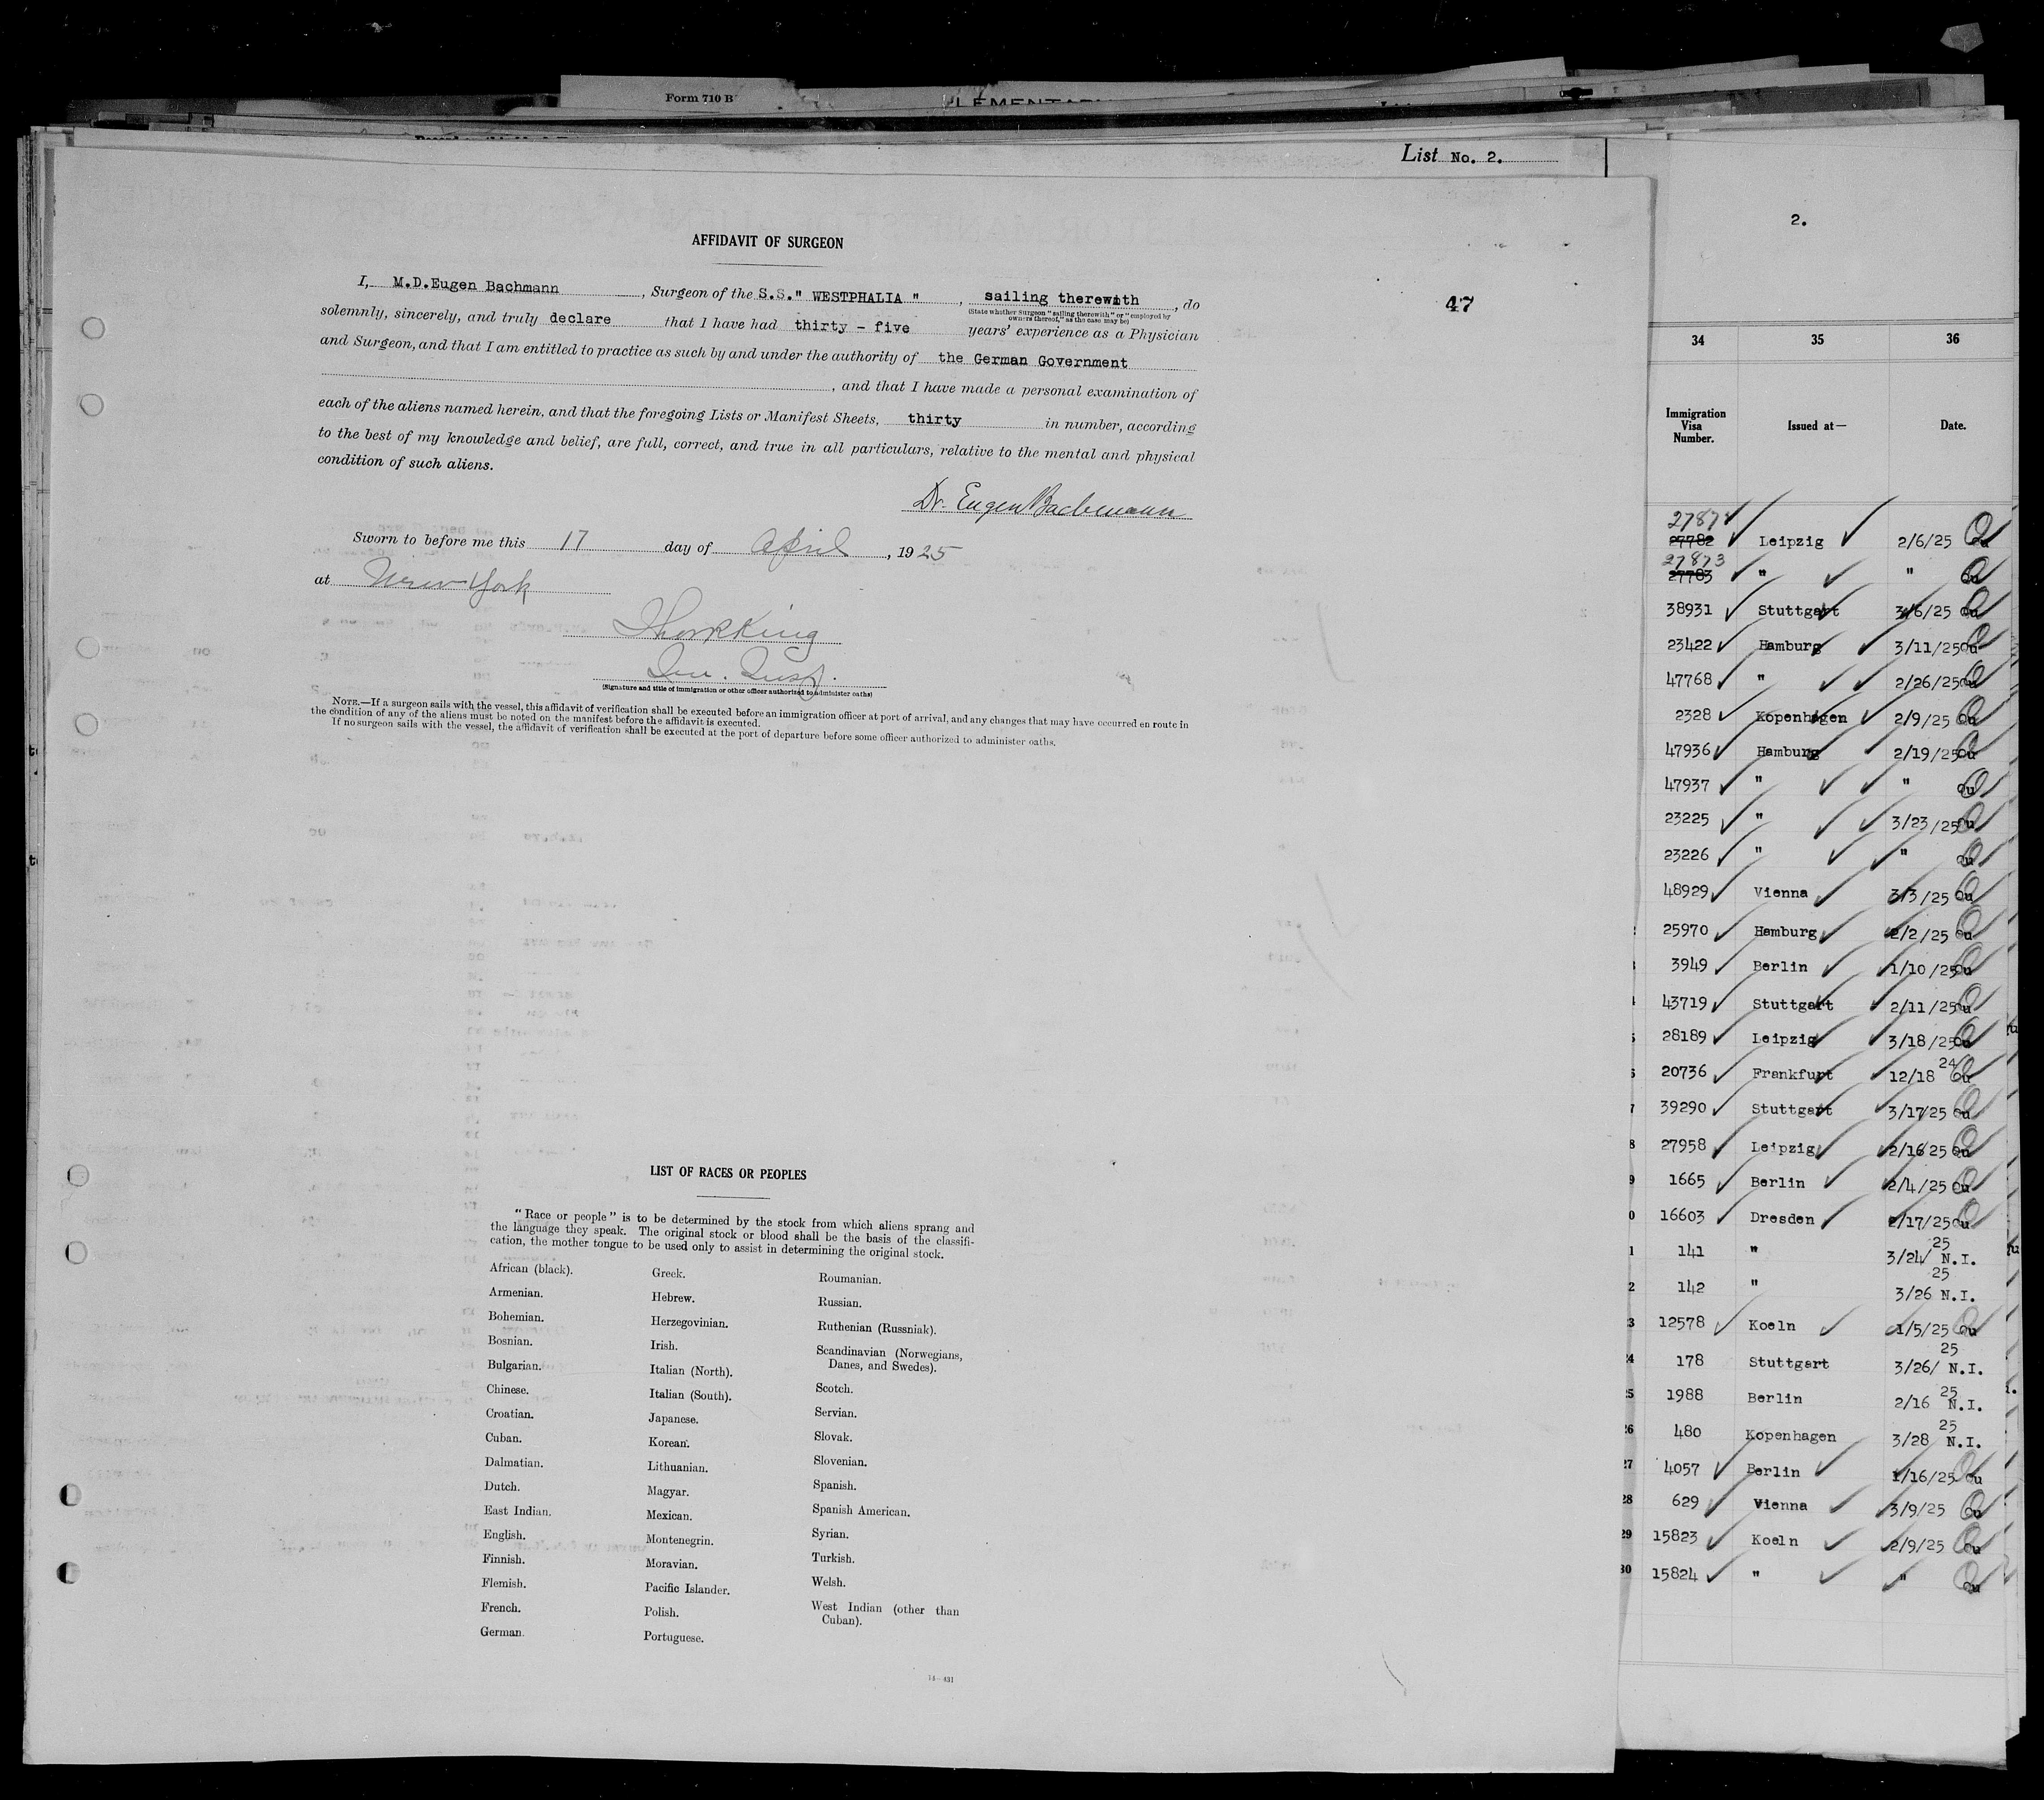 Form 710 B
List No. 2.
2.
AFFIDAVIT OF SURGEON
47
I, M.D.Eugen Bachmann, Surgeon of the S.S." WESTPHALIA ", sailing therewith, do
(State whether Surgeon "sailing therewith" or "employed by
owners thereof," as the case may be)
solemnly, sincerely, and truly declare that I have had thirty - five years' experience as a Physician
and Surgeon, and that I am entitled to practice as such by and under the authority of the German Government
, and that I have made a personal examination of
each of the aliens named herein, and that the foregoing Lists or Manifest Sheets, thirty in number, according
to the best of my knowledge and belief, are full, correct, and true in all particulars, relative to the mental and physical
condition of such aliens.
Dr. Eugen Bachmann
Sworn to before me this 17 day of April, 1925
at New York
(Signature and title of immigration or other officer authorized to administer oaths)
NOTE.—If a surgeon sails with the vessel, this affidavit of verification shall be executed before an immigration officer at port of arrival, and any changes that may have occurred en route in
the condition of any of the aliens must be noted on the manifest before the affidavit is executed.
If no surgeon sails with the vessel, the affidavit of verification shall be executed at the port of departure before some officer authorized to administer oaths.
LIST OF RACES OR PEOPLES
"Race or people" is to be determined by the stock from which aliens sprang and
the language they speak. The original stock or blood shall be the basis of the classifi-
cation, the mother tongue to be used only to assist in determining the original stock.
African (black).
Armenian.
Bohemian.
Bosnian.
Bulgarian.
Chinese.
Croatian.
Cuban.
Dalmatian.
Dutch.
East Indian.
English.
Finnish.
Flemish.
French.
German.
Greek.
Hebrew.
Herzegovinian.
Irish.
Italian (North).
Italian (South).
Japanese.
Korean.
Lithuanian.
Magyar.
Mexican.
Montenegrin.
Moravian.
Pacific Islander.
Polish.
Portuguese.
Roumanian.
Russian.
Ruthenian (Russniak).
Scandinavian (Norwegians,
Danes, and Swedes).
Scotch.
Servian.
Slovak.
Slovenian.
Spanish.
Spanish American.
Syrian.
Turkish.
Welsh.
West Indian (other than
Cuban).
14—431
34 35 36
Immigration
Visa
Number.
Issued at—
Date.
27782 Leipzig 2/6/25 Qu
27873
27783 " " Qu
38931 Stuttgart 3/6/25 Qu
23422 Hamburg 3/11/25 Qu
47768 " 2/26/25 Qu
2328 Kopenhagen 2/9/25 Qu
47936 Hamburg 2/19/25 Qu
47937 " " Qu
23225 " 3/23/25 Qu
23226 " " Qu
48929 Vienna 3/3/25 Qu
25970 Hamburg 2/2/25 Qu
3949 Berlin 1/10/25 Qu
43719 Stuttgart 2/11/25 Qu
28189 Leipzig 3/18/25 Qu
20736 Frankfurt 12/18 24 Qu
7 39290 Stuttgart 3/17/25 Qu
8 27958 Leipzig 2/16 25 Qu
9 1665 Berlin 2/4/25 Qu
0 16603 Dresden 2/17/25 Qu
1 141 " 3/24/ 25 N.I.
2 142 " 3/26 25 N.I.
3 12578 Koeln 1/5/25 Qu
24 178 Stuttgart 3/26/ 25 N.I.
25 1988 Berlin 2/16 25 N.I.
26 480 Kopenhagen 3/28 25 N.I.
27 4057 Berlin 1/16/25 Qu
28 629 Vienna 3/9/25 Qu
29 15823 Koeln 2/9/25 Qu
30 15824 " " Qu